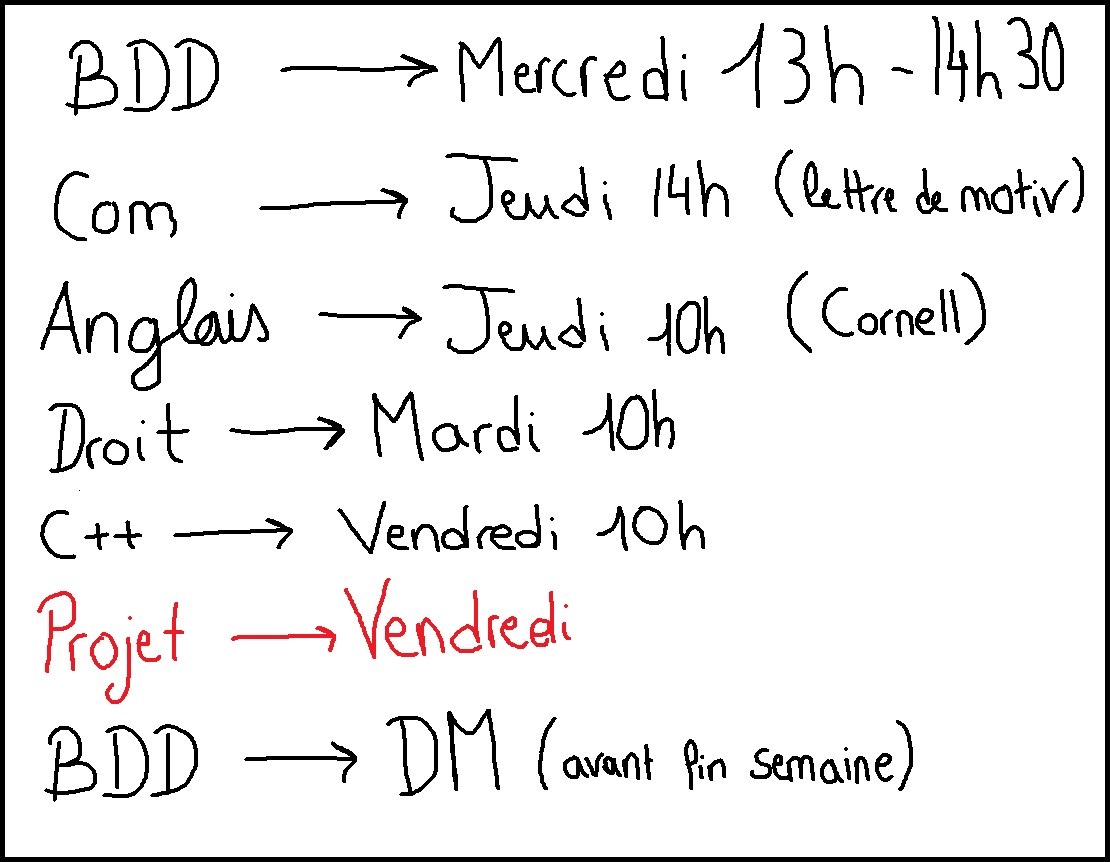 BDD → Mercredi 13h - 14h30
Com → Jeudi 14h (lettre de motiv)
Anglais → Jeudi 10h (Cornell)
Droit → Mardi 10h
C++ → Vendredi 10h
Projet → Vendredi
BDD → DM (avant fin semaine)